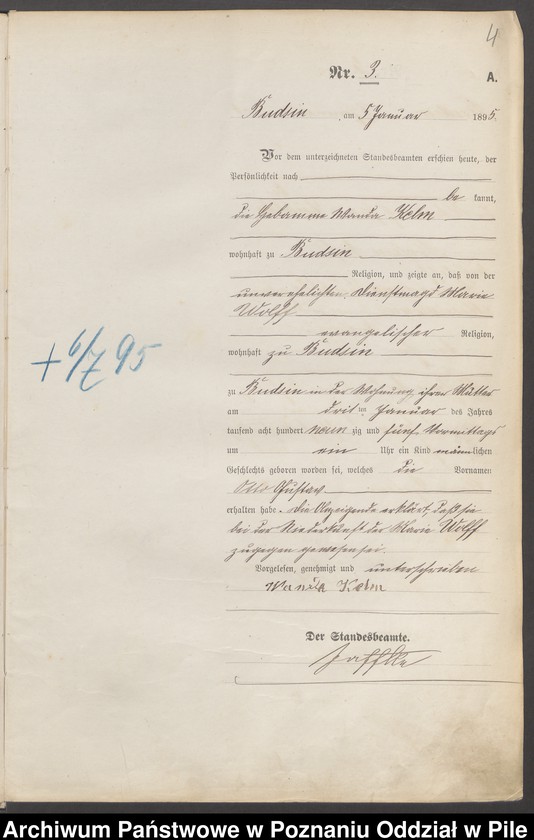 4
Nr. 3.
A.
Budsin, am 5 Januar 1895.
Vor dem unterzeichneten Standesbeamten erschien heute, der
Persönlichkeit nach
be kannt,
die Hebamme Wanda Kelm
wohnhaft zu Budsin
Religion, und zeigte an, daß von der
unverehelichten Dienstmagd Marie
Wolff
evangelischer Religion,
wohnhaft zu Budsin
+ 6/7 95
zu Budsin in der Wohnung ihrer Mutter
am drit ten Januar des Jahres
tausend acht hundert neun zig und fünf Vormittags
um ein Uhr ein Kind männlichen
Geschlechts geboren worden sei, welches die Vornamen
Otto Gustav
erhalten habe. Die Anzeigende erklärt, daß sie
bei der Niederkunft der Marie Wolff
zugegen gewesen sei.
Vorgelesen, genehmigt und unterschrieben
Wanda Kelm
Der Standesbeamte.
Archiwum Państwowe w Poznaniu Oddział w Pile